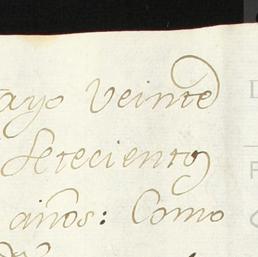 ayo veinte
Setecientos
años: Como